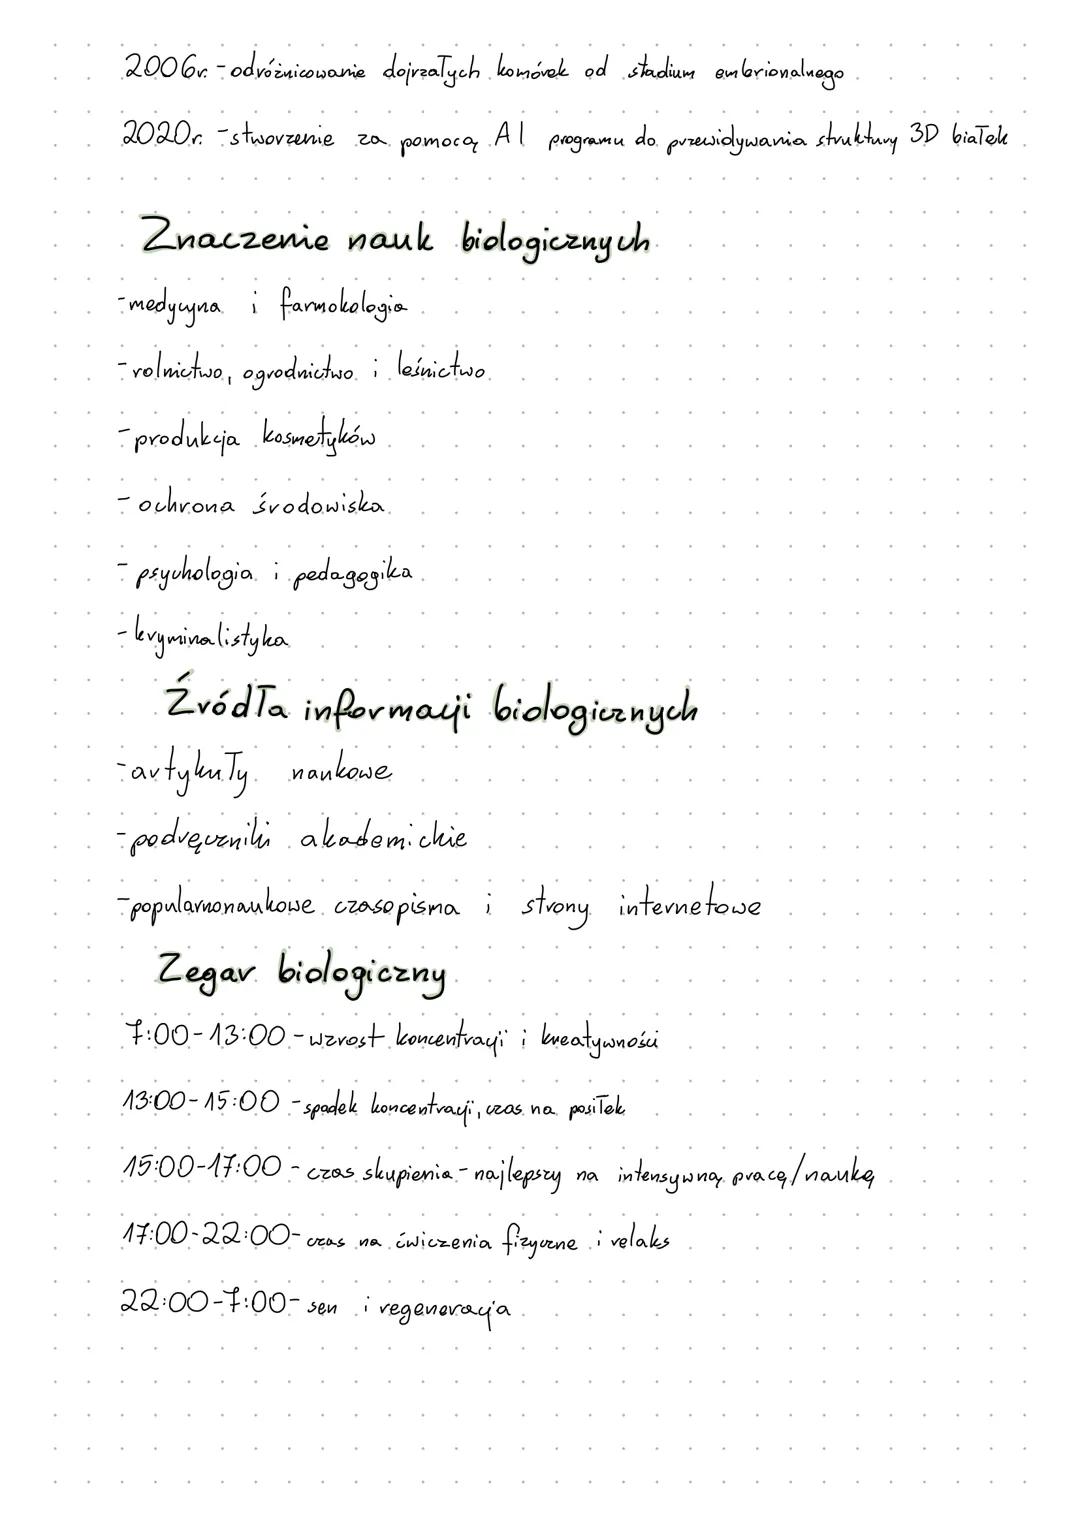 2006r. - odróżnicowanie dojrzałych komórek od stadium embrionalnego
2020r. - stworzenie za pomocą AI programu do przewidywania struktury 3D białek
Znaczenie nauk biologicznych
- medycyna i farmokologia
- rolnictwo, ogrodnictwo i leśnictwo
- produkcja kosmetyków
- ochrona środowiska
- psychologia i pedagogika
- kryminalistyka
Źródła informacji biologicznych
- artykuły naukowe
- podręczniki akademickie
- popularnonaukowe czasopisma i strony internetowe
Zegar biologiczny
7:00-13:00 - wzrost koncentracji i kreatywności
13:00-15:00 - spadek koncentracji, czas na posiłek
15:00-17:00 - czas skupienia - najlepszy na intensywną pracę/naukę
17:00-22:00 - czas na ćwiczenia fizyczne i relaks
22:00-7:00 - sen i regeneracja